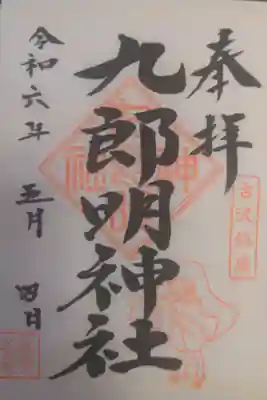 奉拝
九郎明神社
令和六年 五月 四日